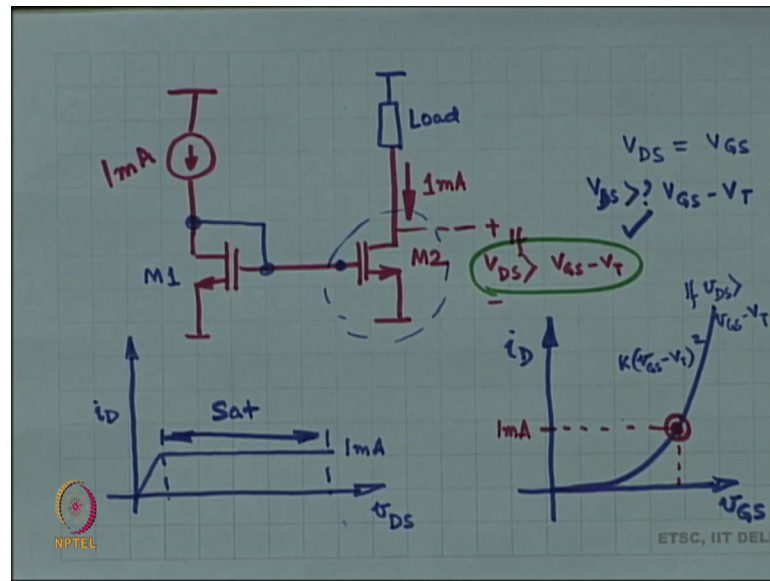 1mA
Load
1mA
V_DS = V_GS
V_DS >? V_GS - V_T
✓
M1
M2
+ If
V_DS > V_GS - V_T
-
i_D
Sat
1mA
v_DS
i_D
If v_DS >
v_GS - V_T
K(v_GS - V_T)²
1mA
v_GS
NPTEL
ETSC, IIT DEL